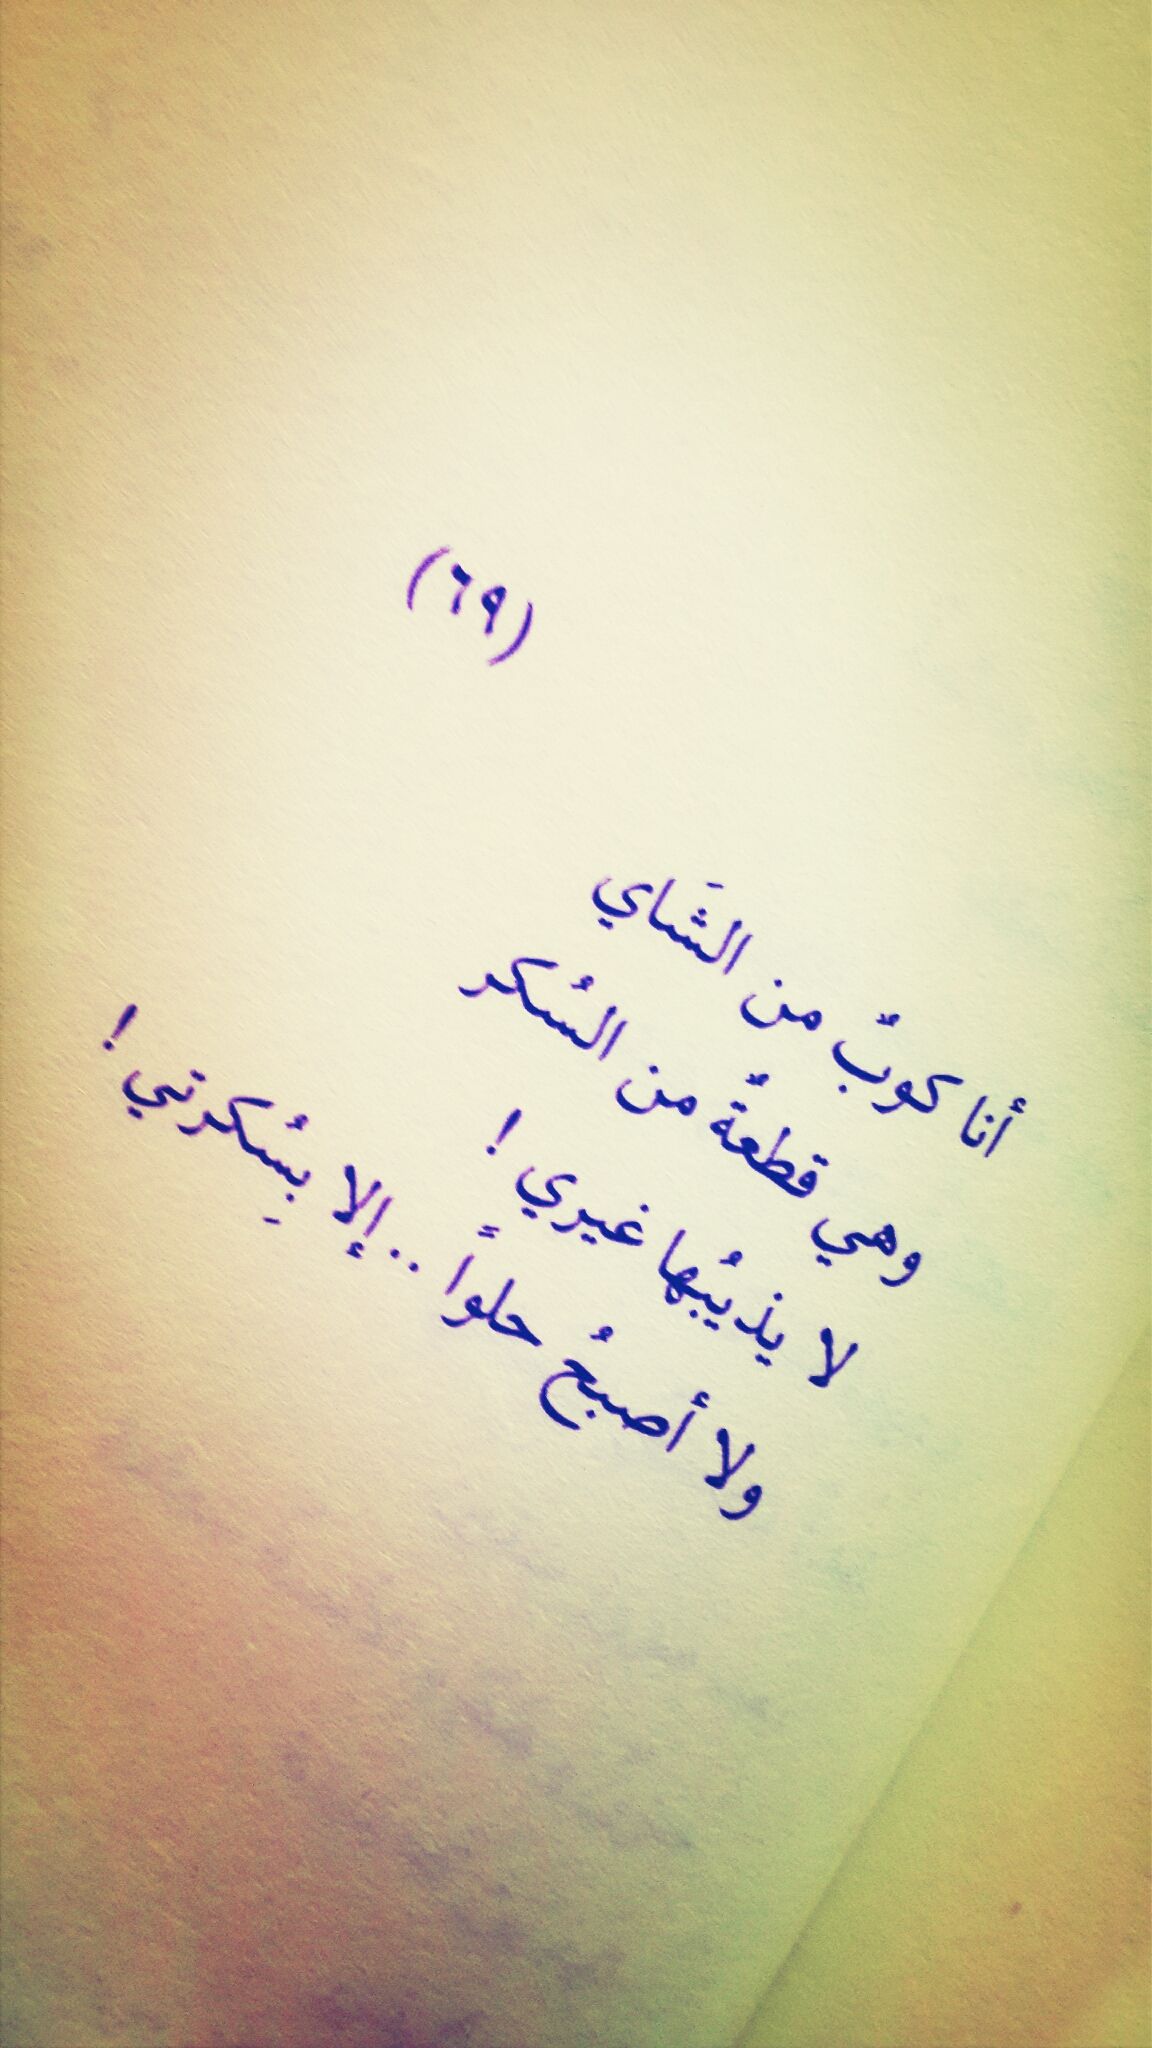 (٦٩)
أنا كوبٌ من الشَاي
وهي قطعةٌ من السُكر
لا يذيبُها غيري !
ولا أصبحُ حلواً .. إلا بِسُكرتي !